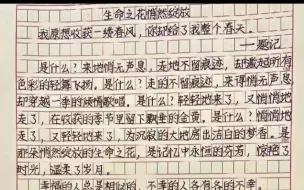 生命之花悄然绽放
我原想收获一缕春风，你却给了我整个春天。
——题记
是什么？来地悄无声息，走地不留痕迹，却撒起所有
色彩的轻舞飞扬。是什么？走的不留痕迹，来得悄无声息
却穿越一季的倾情歌唱。是什么？轻轻地来了，又悄悄地
走了，在收获的季节里留下飘垂的金黄。是什么？悄悄地
走了，又轻轻地来了，为沉寂的大地房出洁白的梦香。是
那朵悄然绽放的生命之花，是记忆中永恒的芬芳，惊艳了
时光，温柔了岁月。
幸福的人总是相似的，不幸的人各有各的不幸